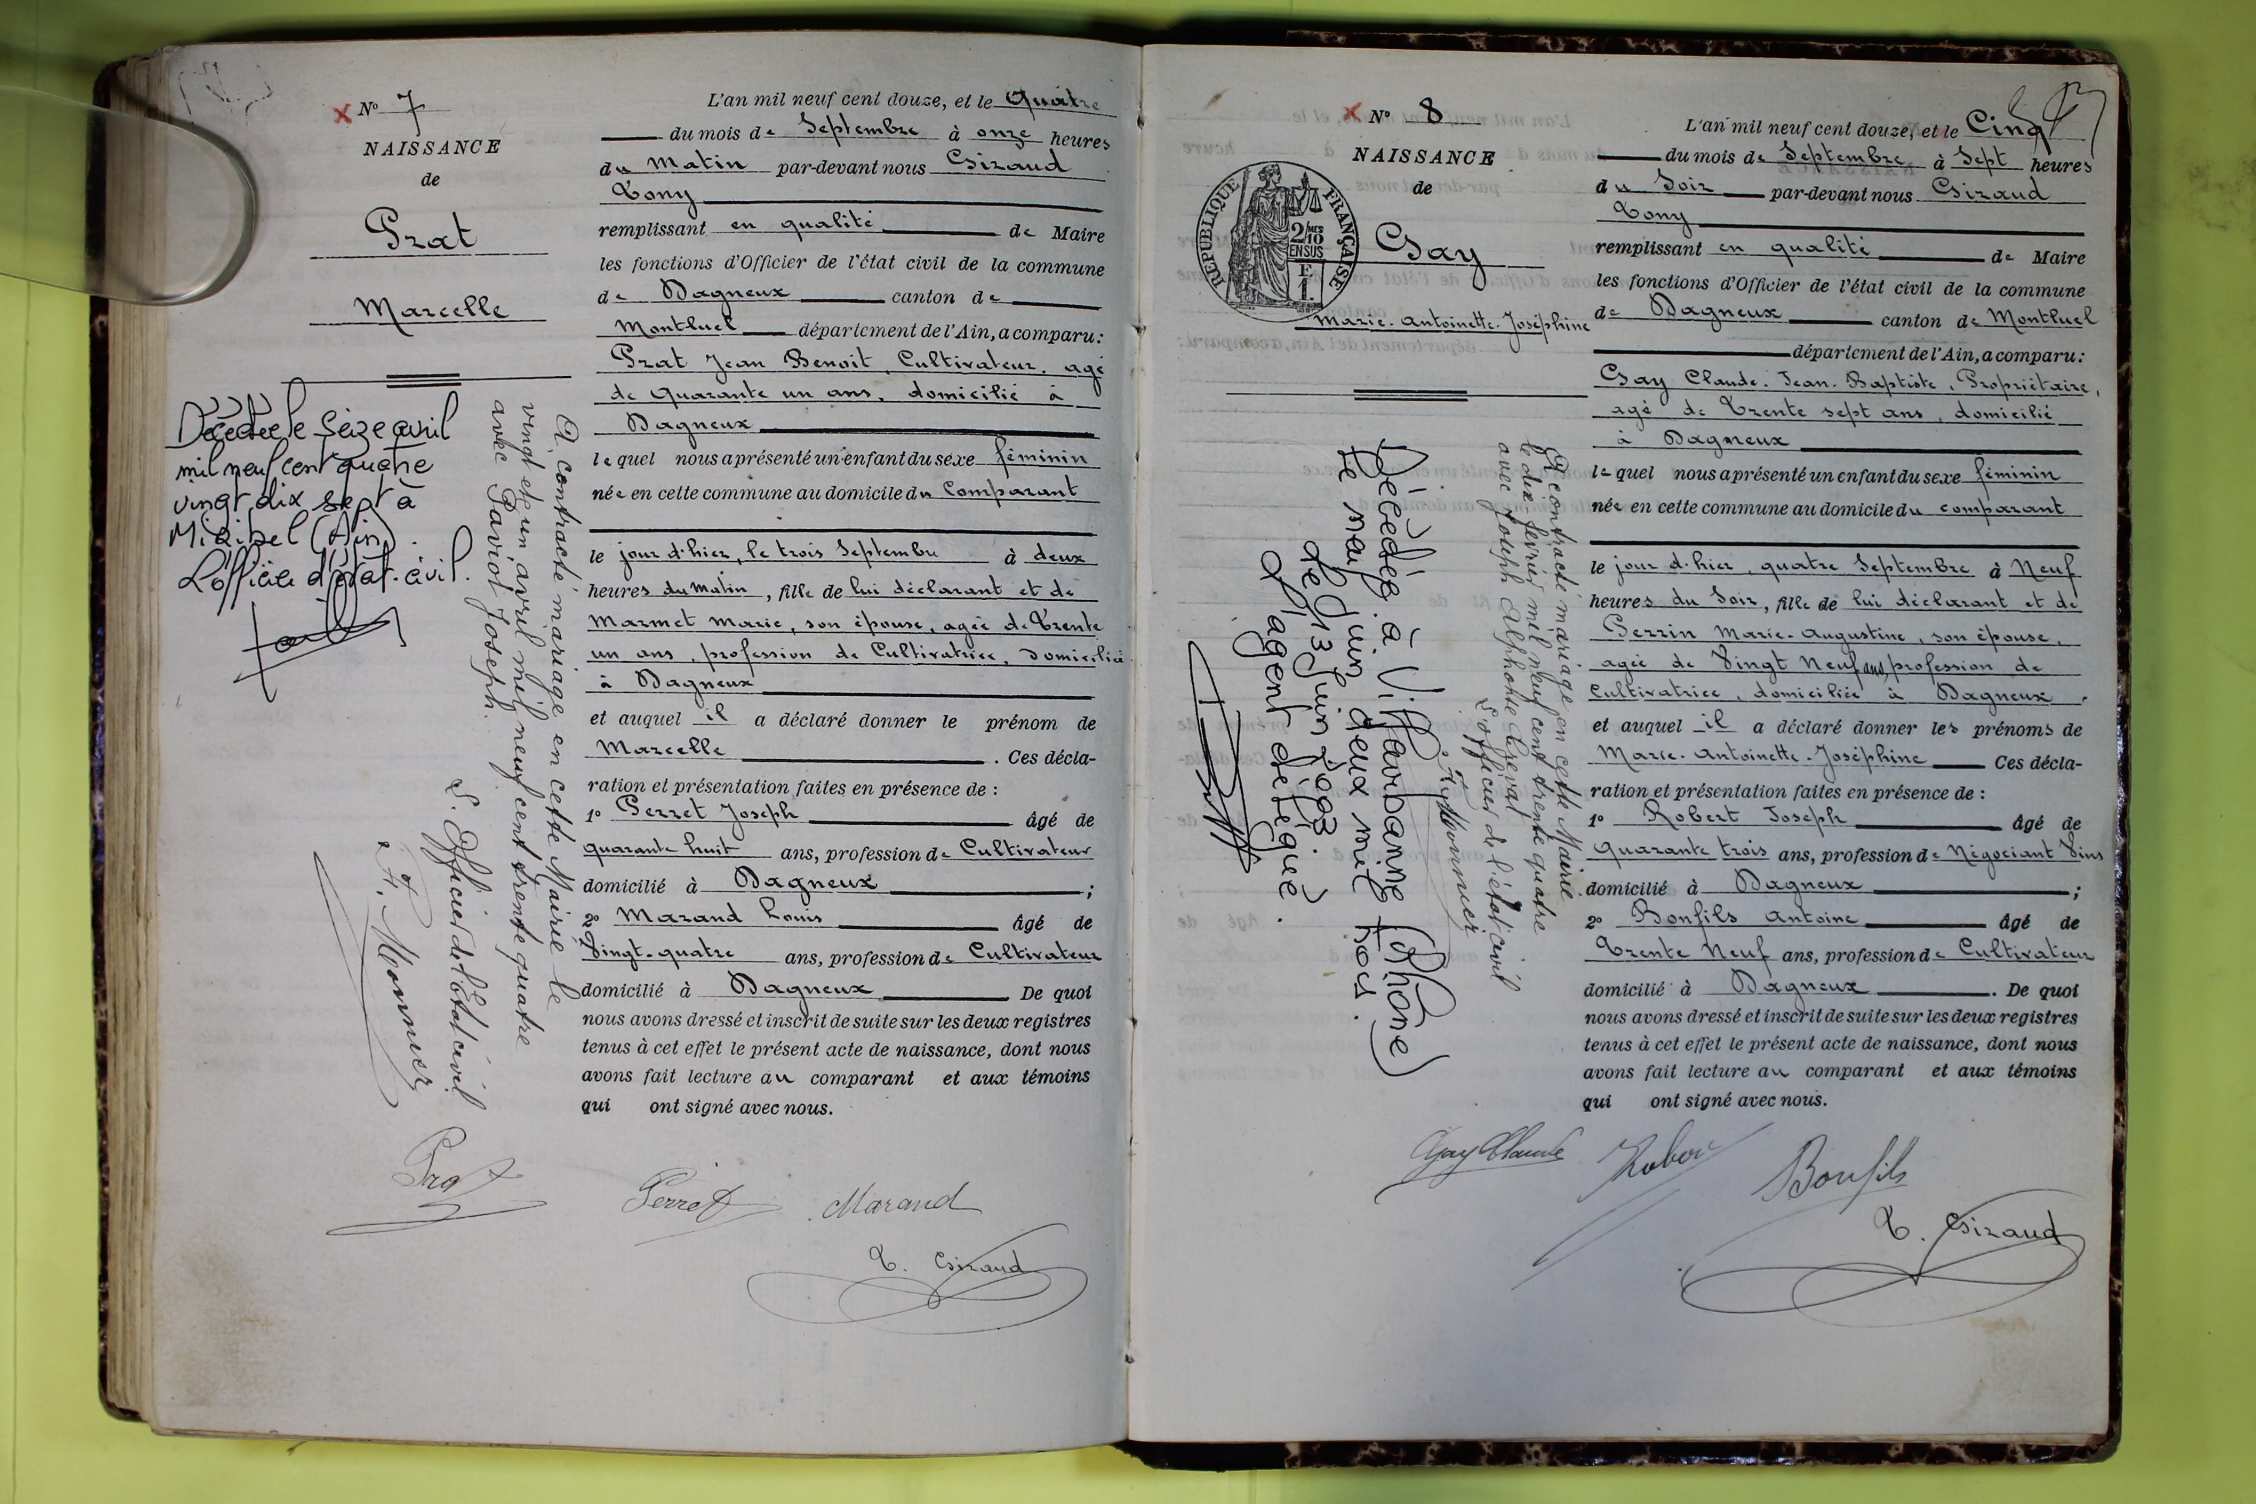 N° 7
NAISSANCE
de
Prat
Marcelle
Décédée le seize avril
mil neuf cent quatre
vingt dix sept à
Miribel (Ain).
L'officier d'état-civil.
A contracté mariage en cette Mairie le
vingt et un avril mil neuf cent trente quatre
avec Paviot Joseph.
L'Officier de l'état civil
F. Monnier
L'an mil neuf cent douze, et le Quatre
du mois de Septembre à onze heures
du Matin par-devant nous Giraud
Tony
remplissant en qualité de Maire
les fonctions d'Officier de l'état civil de la commune
de Dagneux canton de
Montluel département de l'Ain, a comparu :
Prat Jean Benoit, Cultivateur, agé
de Quarante un ans, domicilié à
Dagneux
lequel nous a présenté un enfant du sexe féminin
née en cette commune au domicile du Comparant
le jour d'hier, le trois Septembre à deux
heures du Matin, fille de lui déclarant et de
Marmet Marie, son épouse, agée de Trente
un ans, profession de Cultivatrice, domiciliée
à Dagneux
et auquel il a déclaré donner le prénom de
Marcelle . Ces décla-
ration et présentation faites en présence de :
1° Perret Joseph âgé de
quarante huit ans, profession de Cultivateur
domicilié à Dagneux ;
2° Marand Louis âgé de
Vingt-quatre ans, profession de Cultivateur
domicilié à Dagneux De quoi
nous avons dressé et inscrit de suite sur les deux registres
tenus à cet effet le présent acte de naissance, dont nous
avons fait lecture au comparant et aux témoins
qui ont signé avec nous.
Prat
Perret Marand
T. Giraud
N° 8
NAISSANCE
de
RÉPUBLIQUE FRANÇAISE
2/10 MES
EN SUS
F
1
Gay
Marie-Antoinette-Joséphine
A contracté mariage en cette Mairie
le dix février mil neuf cent trente quatre
avec Joseph Alphonse
L'officier de l'état civil
F. Monnier
Décédée à Villeurbanne (Rhône)
le neuf juin deux mil trois.
Le 13 Juin 2003
L'agent délégué.
L'an mil neuf cent douze, et le Cinq
du mois de Septembre à Sept heures
du Soir par-devant nous Giraud
Tony
remplissant en qualité de Maire
les fonctions d'Officier de l'état civil de la commune
de Dagneux canton de Montluel
département de l'Ain, a comparu :
Gay Claude-Jean-Baptiste, Propriétaire,
agé de Trente sept ans, domicilié
à Dagneux
lequel nous a présenté un enfant du sexe féminin
née en cette commune au domicile du comparant
le jour d'hier, quatre Septembre à Neuf
heures du Soir, fille de lui déclarant et de
Perrin Marie-Augustine, son épouse,
agée de Vingt Neuf ans, profession de
Cultivatrice, domiciliée à Dagneux
et auquel il a déclaré donner les prénoms de
Marie-Antoinette-Joséphine Ces décla-
ration et présentation faites en présence de :
1° Robert Joseph âgé de
Quarante trois ans, profession de Négociant Vins
domicilié à Dagneux ;
2° Bonfils Antoine âgé de
Trente Neuf ans, profession de Cultivateur
domicilié à Dagneux . De quoi
nous avons dressé et inscrit de suite sur les deux registres
tenus à cet effet le présent acte de naissance, dont nous
avons fait lecture au comparant et aux témoins
qui ont signé avec nous.
Gay Claude Robert Bonfils
T. Giraud